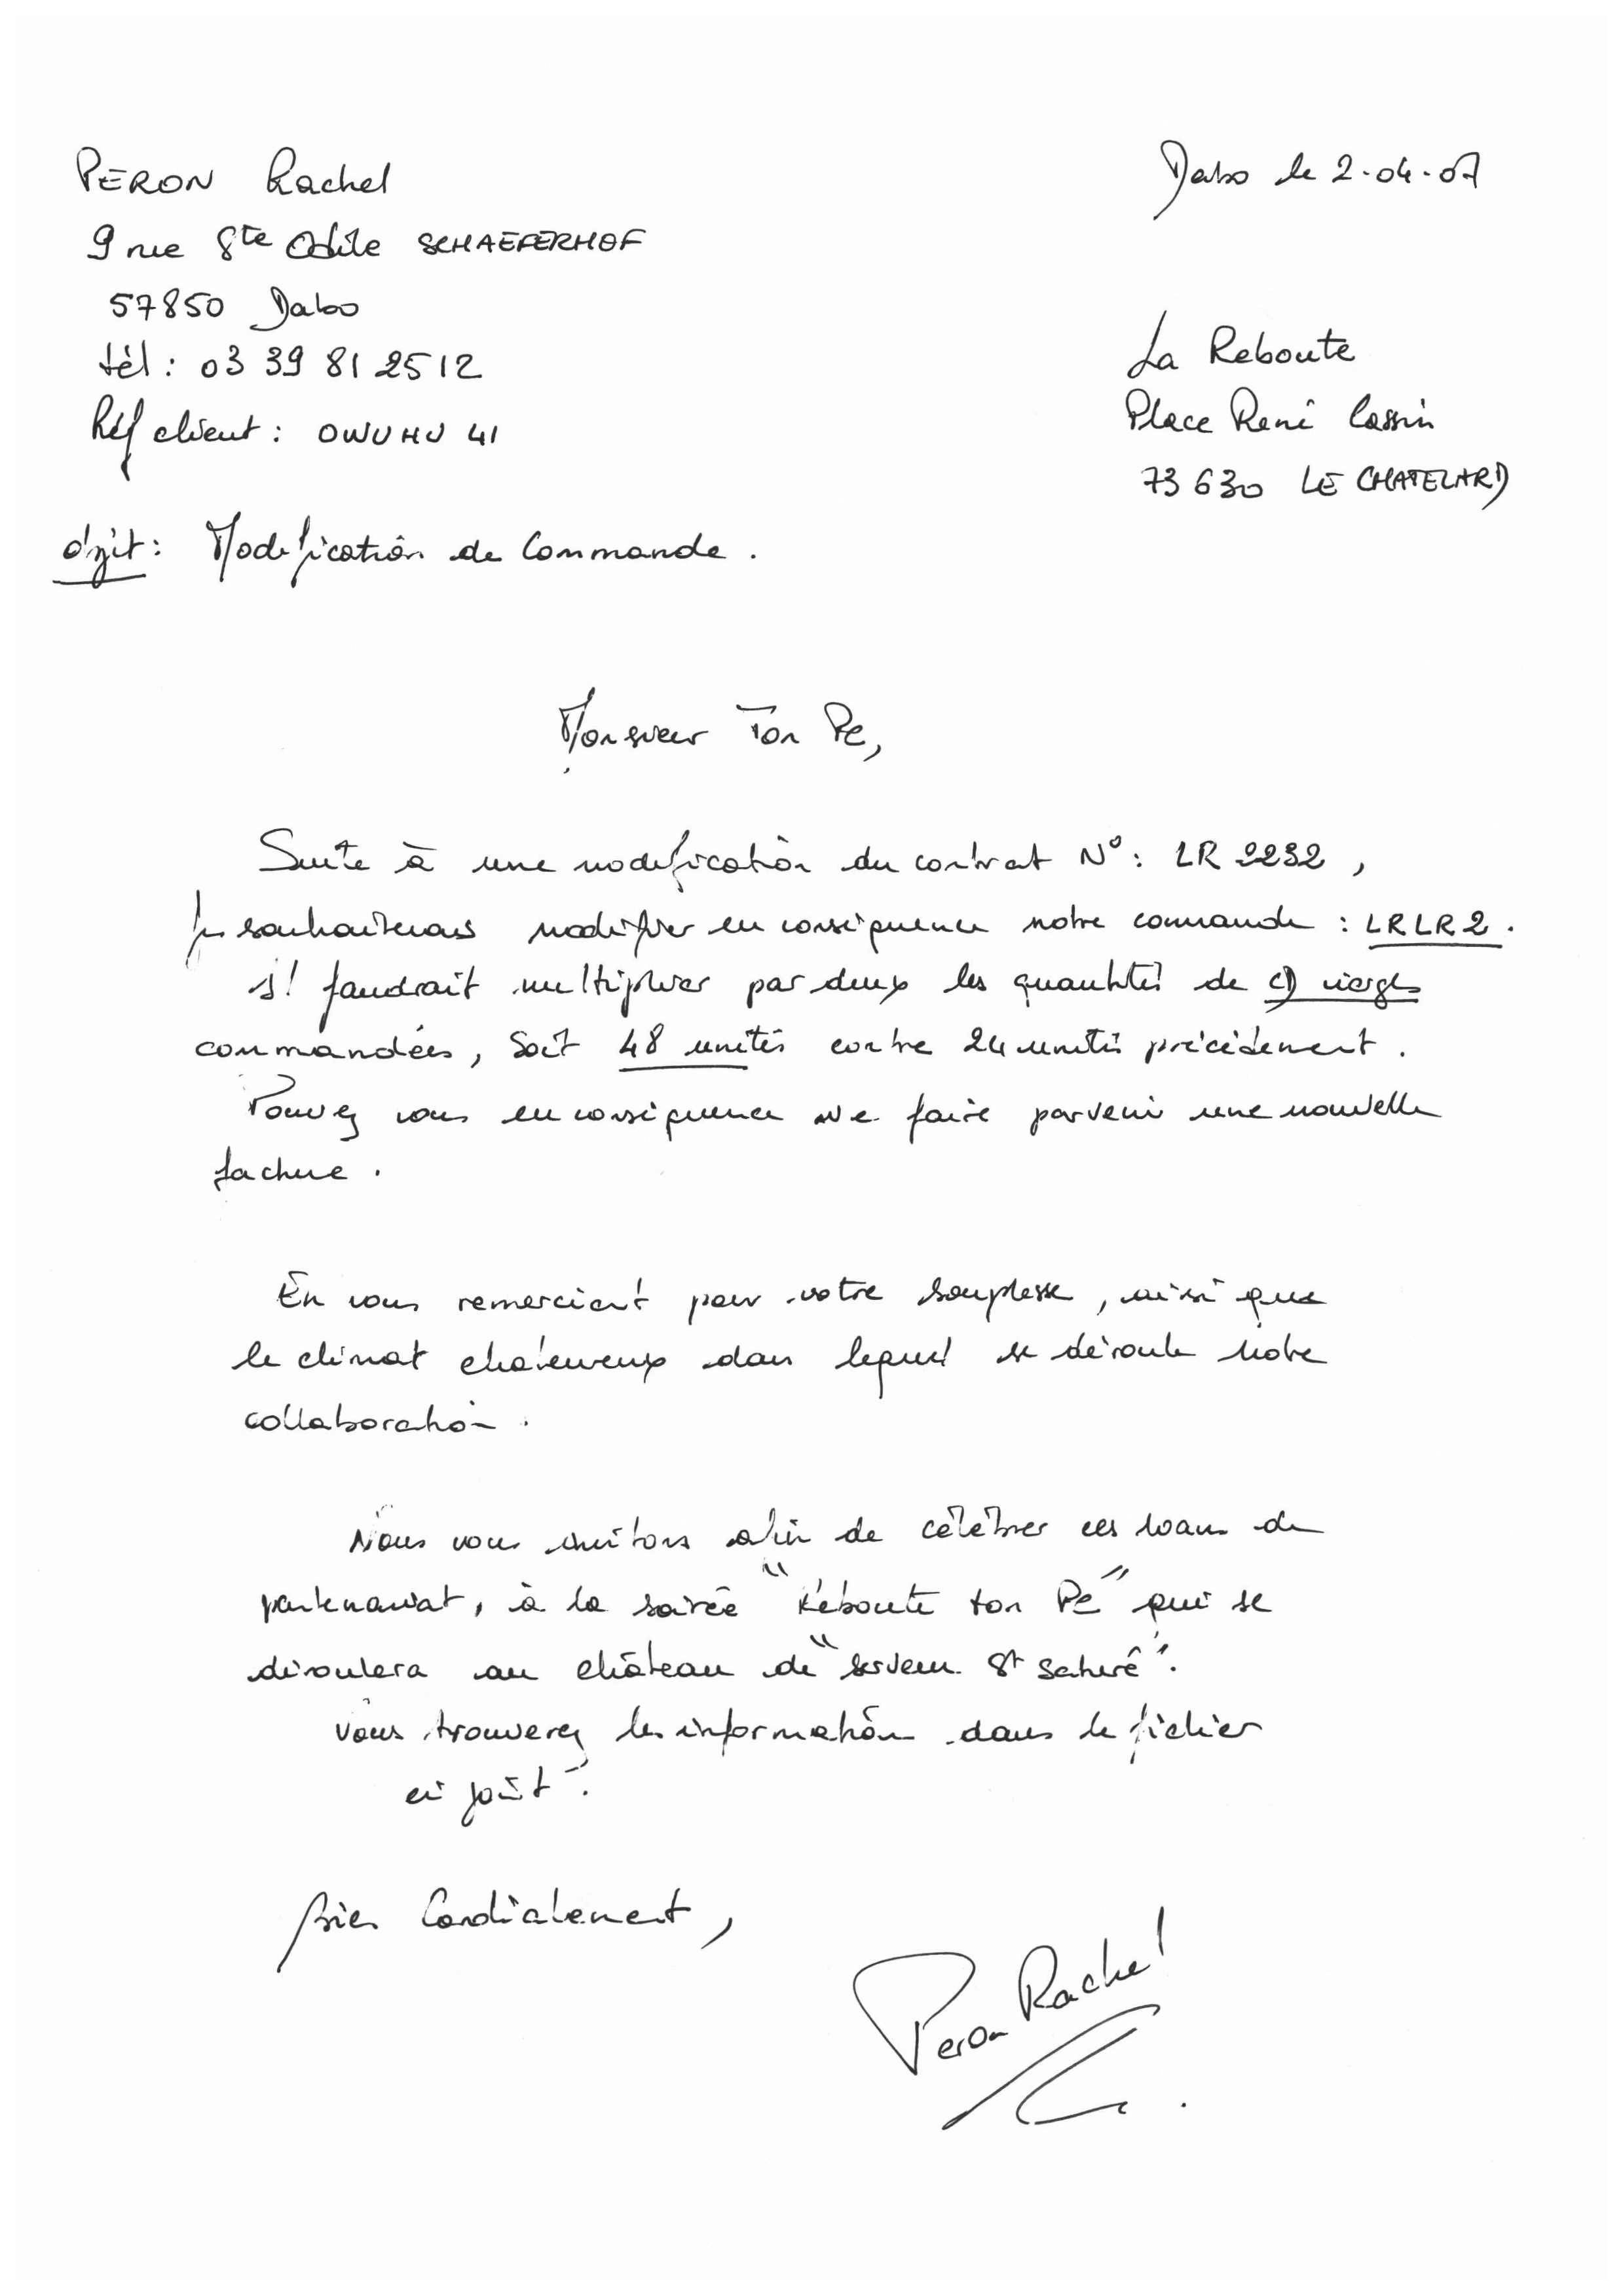 PERON Rachel
Dabo le 2.04.07
9 rue Ste Odile SCHAEFERHOF
57850 Dabo
tél : 03 39 81 25 12
Réf client : OWUHU 41
La Reboute
Place René Cassin
73630 LE CHATELARD
objet : Modification de Commande.
Monsieur Ton Pe,
Suite à une modification du contrat N° : LR 2232,
Je souhaiterais modifier en conséquence notre commande : LRLR2.
Il faudrait multiplier par deux les quantités de CD vierges
commandées, soit 48 unités contre 24 unités précédement.
Pouvez vous en conséquence me faire parvenir une nouvelle
facture.
En vous remerciant pour votre souplesse, ainsi que
le climat chaleureux dans lequel se déroule notre
collaboration.
Nous vous invitons afin de célébrer ces 10 ans de
partenariat, à la soirée "Réboute ton Pe" qui se
déroulera au château de "serveur St saturé".
Vous trouverez les informations dans le fichier
ci joint.
Bien Cordialement,
Peron Rachel